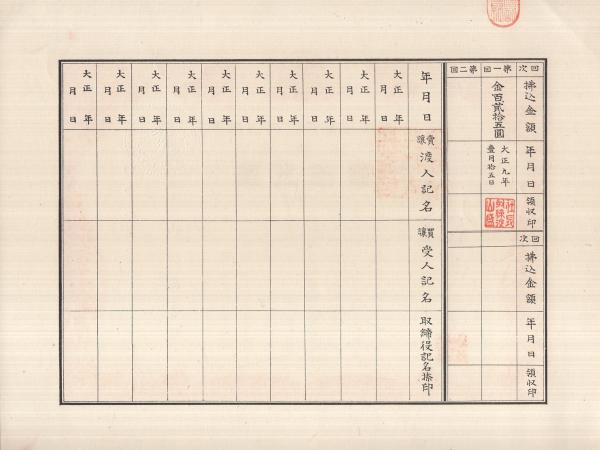 回次
第一回
第二回
拂込金額
金百貳拾五圓
年月日
大正九年
壹月拾五日
領収印
回次
拂込金額
年月日
領収印
年月日
賣讓渡人記名
買讓受人記名
取締役記名捺印
大正年月日
大正年月日
大正年月日
大正年月日
大正年月日
大正年月日
大正年月日
大正年月日
大正年月日
大正年月日